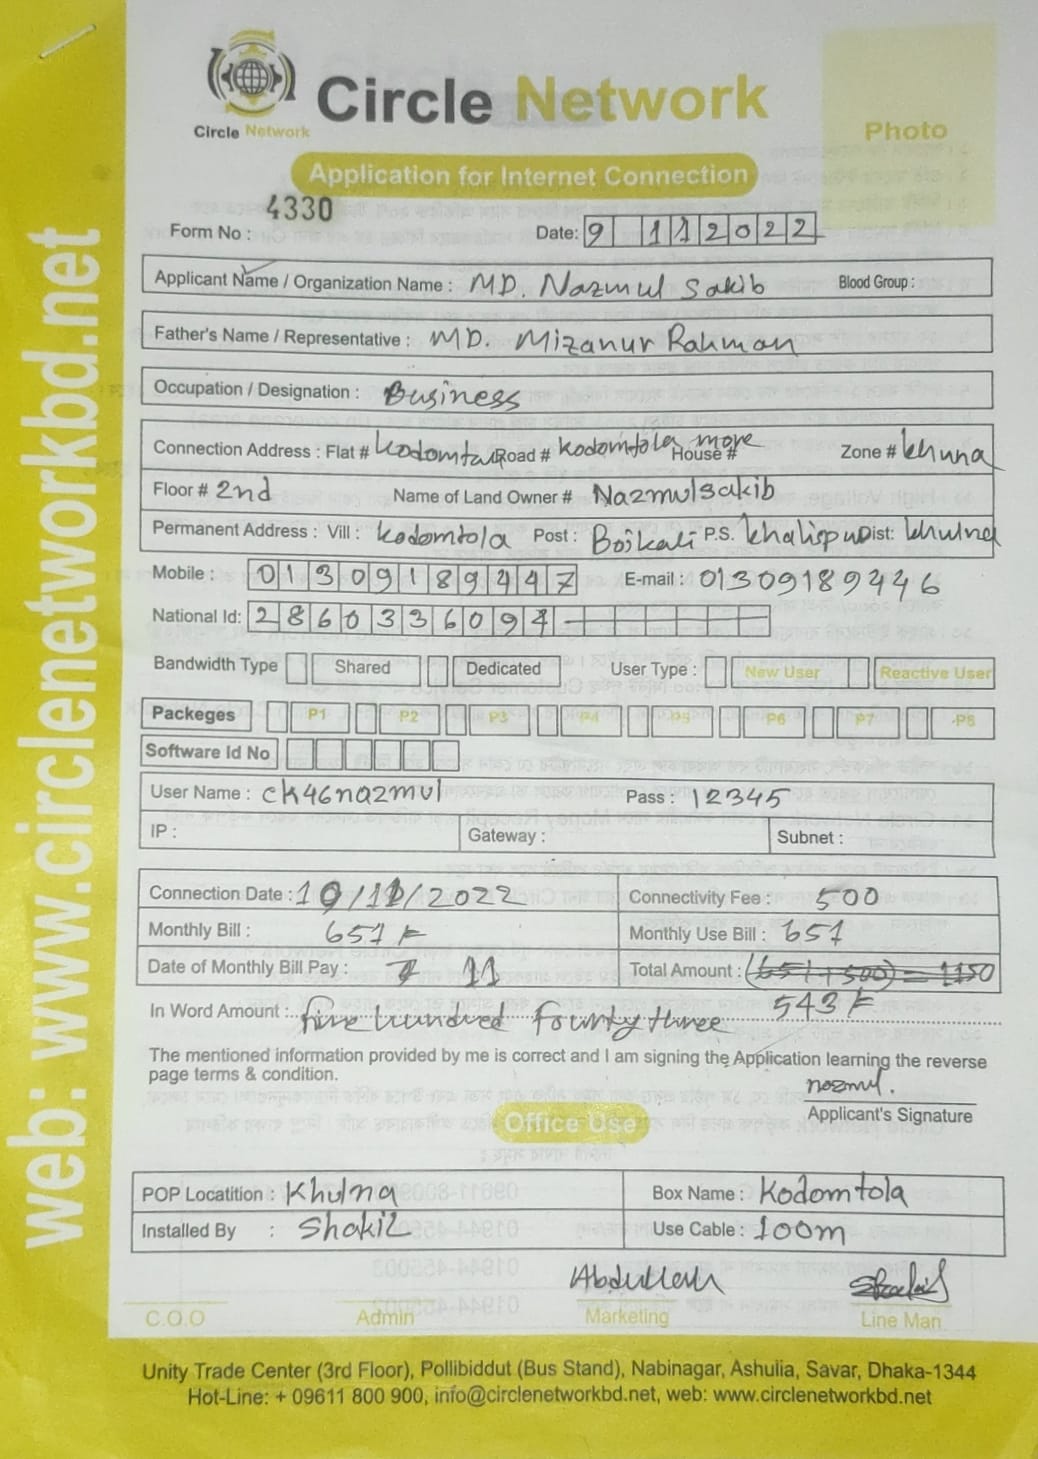 Circle Network
Circle Network
Photo
Application for Internet Connection
Form No : 4330
Date: 9 1 1 2 0 2 2
Applicant Name / Organization Name : MD. Nazmul Sakib Blood Group :
Father's Name / Representative : MD. Mizanur Rahman
Occupation / Designation : Business
Connection Address : Flat # Road # Kodomtola more House # Zone #
Floor # 2nd Name of Land Owner # Nazmulsakib
Permanent Address : Vill : Kodomtola Post : Boikali P.S. Khalispur Dist: khulna
Mobile : 01309189447 E-mail : 01309189446
National Id: 2860336094
Bandwidth Type Shared Dedicated User Type : New User Reactive User
Packeges P1 P2 P3 P4 P5 P6 P7 P8
Software Id No
User Name : ck46nazmul Pass : 12345
IP : Gateway : Subnet :
Connection Date : 10/11/2022 Connectivity Fee : 500
Monthly Bill : 651 Monthly Use Bill : 651
Date of Monthly Bill Pay : 11 Total Amount : (651+500) = 1150
In Word Amount : five hundred fourty three 543
The mentioned information provided by me is correct and I am signing the Application learning the reverse
page terms & condition.
nazmul.
Applicant's Signature
Office Use
POP Locatition : Khulna Box Name : Kodomtola
Installed By : Shakil Use Cable : 100m
Abdullah
C.O.O Admin Marketing Line Man
Unity Trade Center (3rd Floor), Pollibiddut (Bus Stand), Nabinagar, Ashulia, Savar, Dhaka-1344
Hot-Line: + 09611 800 900, info@circlenetworkbd.net, web: www.circlenetworkbd.net
web: www.circlenetworkbd.net